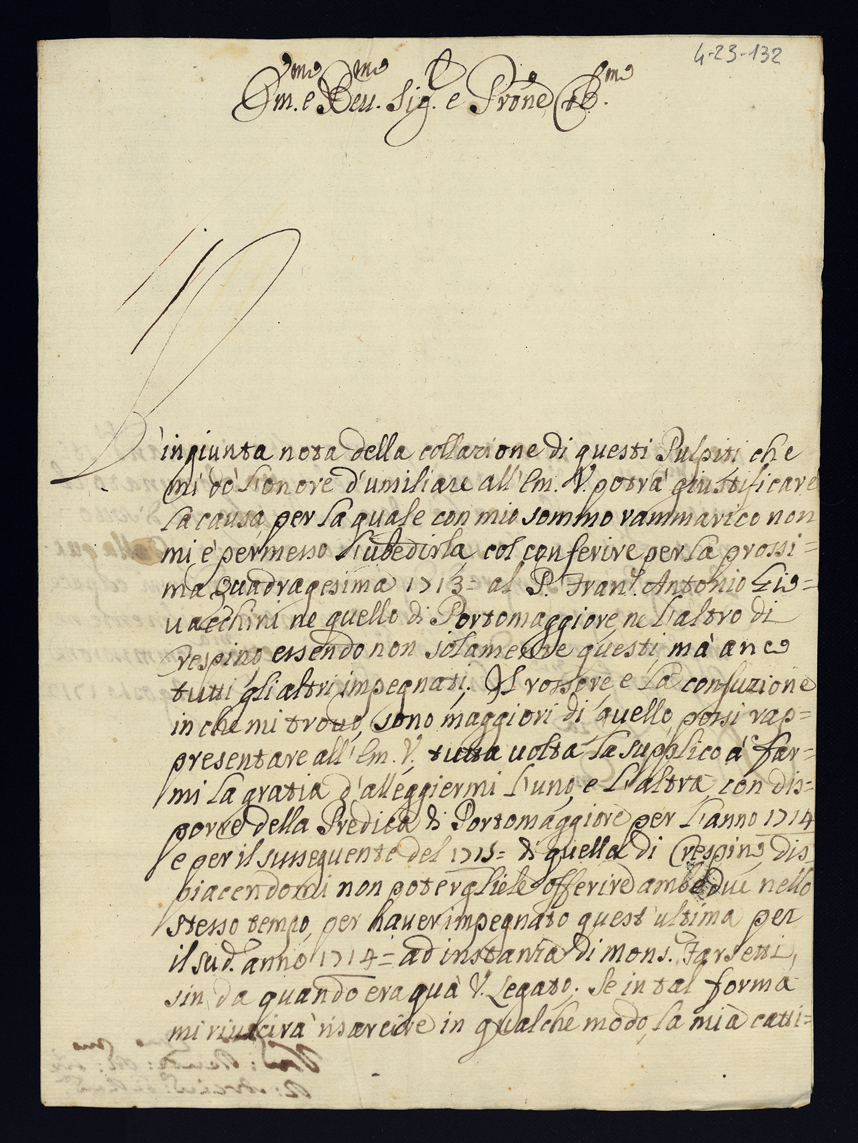 4-23-132
Em.mo e Rev.mo Sig.r e Prone Col.mo
L'ingiunta nota della collazione di questi Pulpiti che
mi dò l'onore d'umiliare all'Em. V. potrà giustificare
la causa per la quale con mio sommo rammarico non
mi è permesso l'ubedirla col conferire per la prossi=
ma Quadragesima 1713= al P. Fran.o Antonio
ne quello di Portomaggiore ne l'altro di
Crespino essendo non solamente questi mà anco
tutti gli altri impegnati. Il rossore, e la confuzione
in che mi trovo, sono maggiori di quello, possi rap=
presentare all'Em. V. tutta volta la supplico à far=
mi la gratia d'alleggiermi l'uno, e l'altra, con dis=
porre della Predica di Portomaggiore per l'anno 1714
e per il susseguente del 1715= di quella di Crespino, dis
piacendomi non potergliele offerire ambedue nello
stesso tempo, per haver impegnato quest'ultima per
il sud.o anno 1714= ad instanza di mons. Farsetti,
sin da quando era quà V. Legato. Se in tal forma
mi riuscirà risarcire in qualche modo, la mia catti=